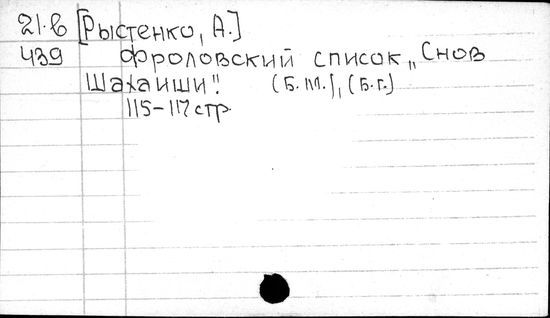 21.в [Рыстенко, А.]
439 Фроловский список „Снов
Шахаиши". (Б.м.), (Б.г.)
115-117 стр.